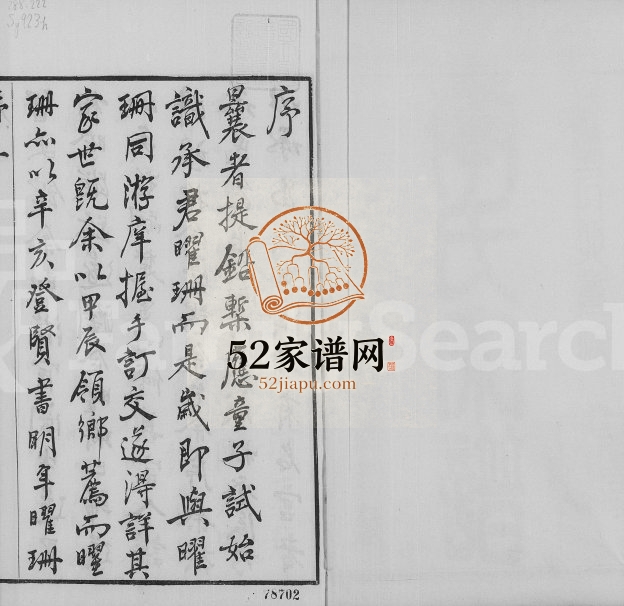 序
曩者提鉛槧應童子試始
識承君曜珊而是歲即與曜
珊同游庠握手訂交遂得詳其
家世旣余以甲辰領鄉薦而曜
珊亦以辛亥登賢書明年曜珊
序一
78702
52家谱网
52jiapu.com
Search